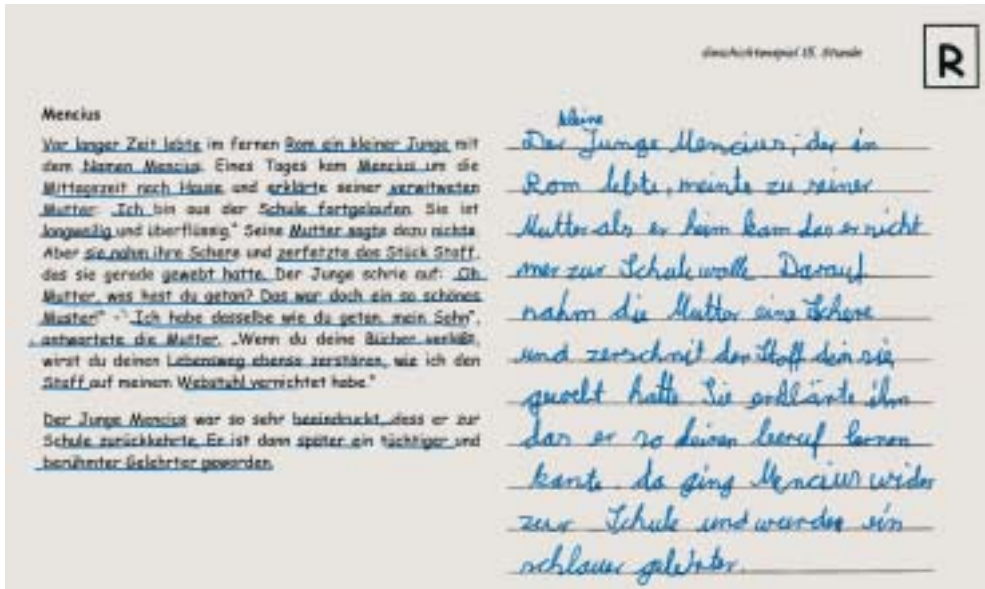 Geschichtenspiel 15. Stunde
R
Mencius
Vor langer Zeit lebte im fernen Rom ein kleiner Junge mit
dem Namen Mencius. Eines Tages kam Mencius um die
Mittagszeit nach Hause und erklärte seiner verwitweten
Mutter: „Ich bin aus der Schule fortgelaufen. Sie ist
langweilig und überflüssig." Seine Mutter sagte dazu nichts.
Aber sie nahm ihre Schere und zerfetzte das Stück Stoff,
das sie gerade gewebt hatte. Der Junge schrie auf: „Oh
Mutter, was hast du getan? Das war doch ein so schönes
Muster!" - „Ich habe dasselbe wie du getan, mein Sohn",
antwortete die Mutter. „Wenn du deine Bücher verläßt,
wirst du deinen Lebensweg ebenso zerstören, wie ich den
Stoff auf meinem Webstuhl vernichtet habe."
Der Junge Mencius war so sehr beeindruckt, dass er zur
Schule zurückkehrte. Er ist dann später ein tüchtiger und
berühmter Gelehrter geworden.
kleine
Der Junge Mencius, der in
Rom lebte, meinte zu seiner
Mutter als er heim kam das er nicht
mer zur Schule wolle. Darauf
nahm die Mutter eine Schere
und zerschnit den Stoff den sie
gewebt hatte. Sie erklärte ihm
das er so keinen beruf lernen
kante. da ging Mencius wider
zur Schule und wurde ein
schlauer gelehrter.